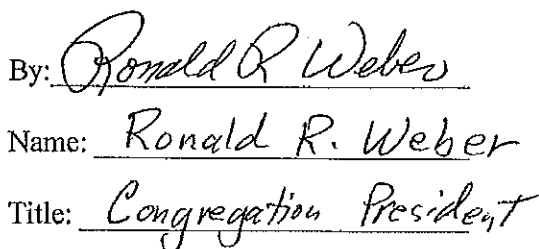 By: Ronald R Weber
Name: Ronald R. Weber
Title: Congregation President